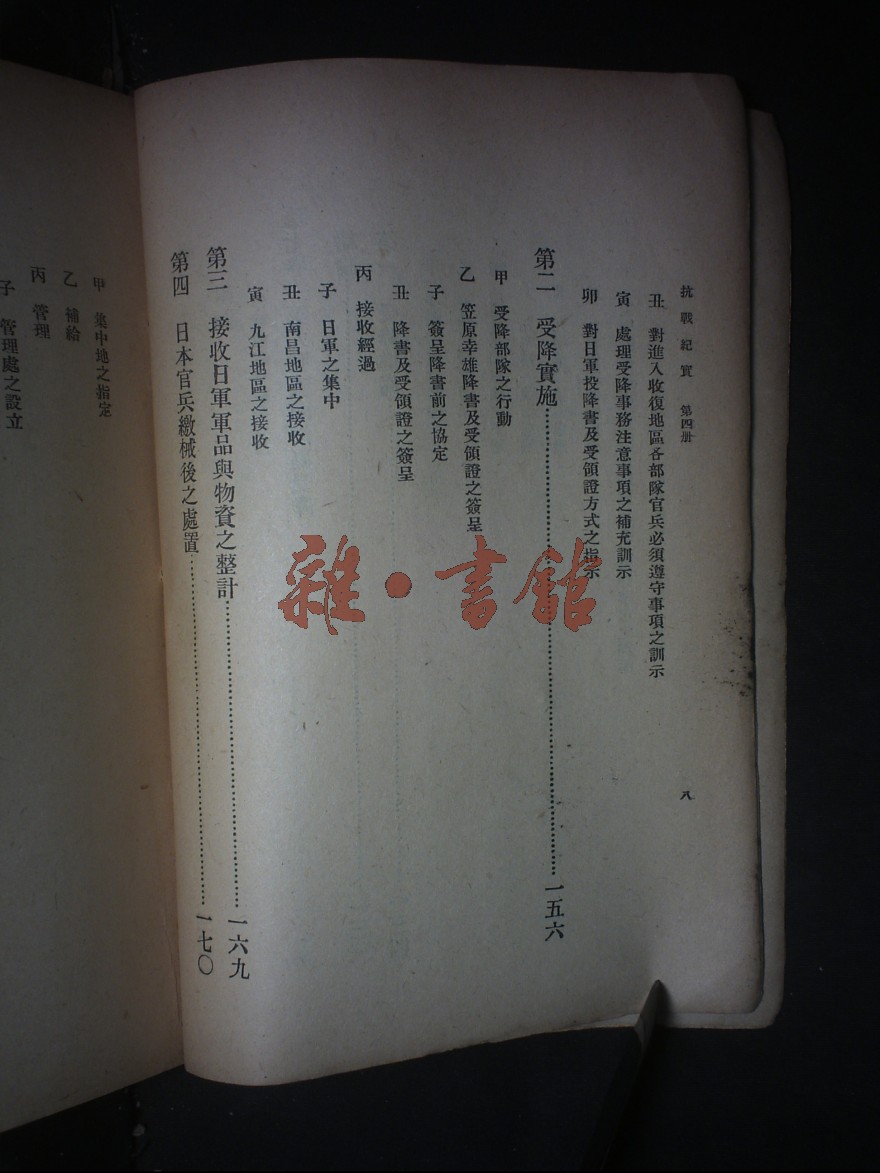 抗戰紀實　第四册
丑　對進入收復地區各部隊官兵必須遵守事項之訓示
寅　處理受降事務注意事項之補充訓示
卯　對日軍投降書及受領證方式之指示
第二　受降實施……………………一五六
甲　受降部隊之行動
乙　笠原幸雄降書及受領證之簽呈
子　簽呈降書前之協定
丑　降書及受領證之簽呈
丙　接收經過
子　日軍之集中
丑　南昌地區之接收
寅　九江地區之接收
第三　接收日軍軍品與物資之整計……………………一六九
第四　日本官兵繳械後之處置……………………一七〇
八
甲　集中地之指定
乙　補給
丙　管理
子　管理處之設立
雜·書館